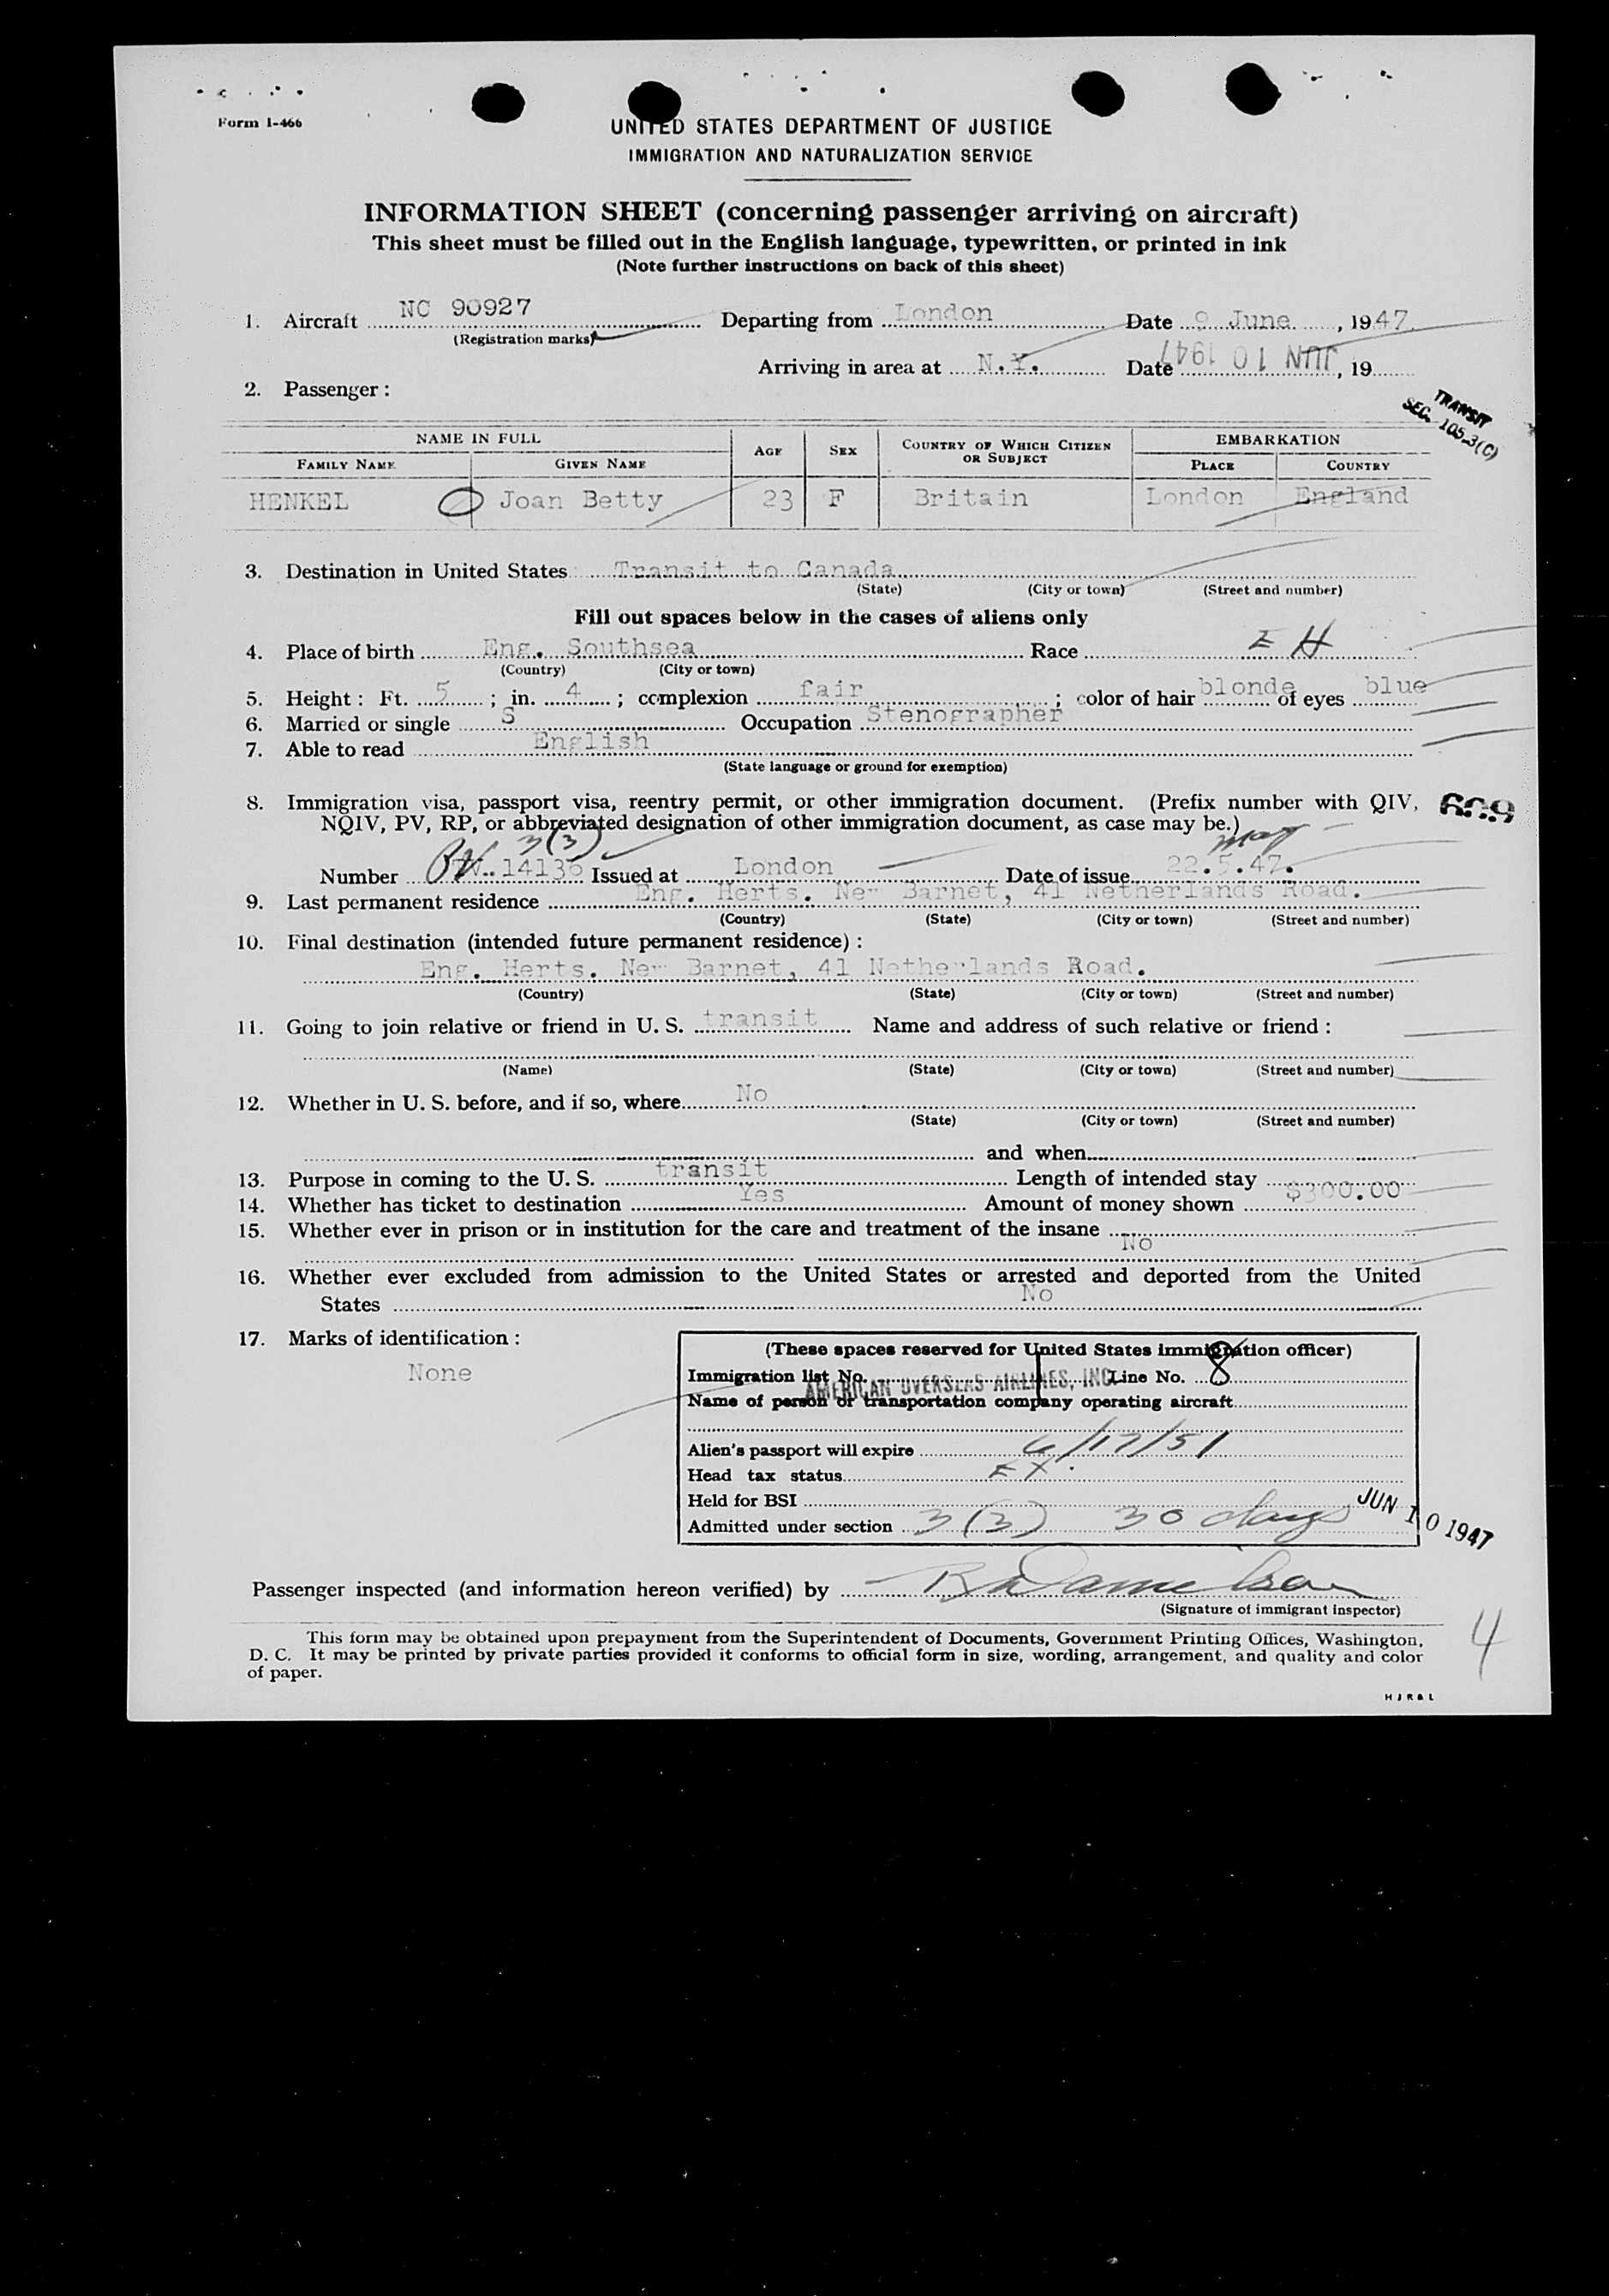 Form I-466
UNITED STATES DEPARTMENT OF JUSTICE
IMMIGRATION AND NATURALIZATION SERVICE
INFORMATION SHEET (concerning passenger arriving on aircraft)
This sheet must be filled out in the English language, typewritten, or printed in ink
(Note further instructions on back of this sheet)
1. Aircraft NC 90927 Departing from London Date 9 June, 1947.
(Registration marks)
Arriving in area at N.Y. Date JUN 10 1947, 19
2. Passenger:
TRANSIT
SEC. 105.3(C)
NAME IN FULL AGE SEX COUNTRY OF WHICH CITIZEN OR SUBJECT EMBARKATION
FAMILY NAME GIVEN NAME PLACE COUNTRY
HENKEL Joan Betty 23 F Britain London England
3. Destination in United States Transit to Canada
(State) (City or town) (Street and number)
Fill out spaces below in the cases of aliens only
4. Place of birth Eng. Southsea Race
(Country) (City or town)
5. Height: Ft. 5; in. 4; complexion fair; color of hair blonde of eyes blue
6. Married or single S Occupation Stenographer
7. Able to read English
(State language or ground for exemption)
8. Immigration visa, passport visa, reentry permit, or other immigration document. (Prefix number with QIV,
NQIV, PV, RP, or abbreviated designation of other immigration document, as case may be.)
3(3) may
Number 14136 Issued at London Date of issue 22.5.47.
9. Last permanent residence Eng. Herts. New Barnet, 41 Netherlands Road.
(Country) (State) (City or town) (Street and number)
10. Final destination (intended future permanent residence):
Eng. Herts. New Barnet, 41 Netherlands Road.
(Country) (State) (City or town) (Street and number)
11. Going to join relative or friend in U. S. transit Name and address of such relative or friend:
(Name) (State) (City or town) (Street and number)
12. Whether in U. S. before, and if so, where No
(State) (City or town) (Street and number)
and when
13. Purpose in coming to the U. S. transit Length of intended stay
14. Whether has ticket to destination Yes Amount of money shown $300.00
15. Whether ever in prison or in institution for the care and treatment of the insane No
16. Whether ever excluded from admission to the United States or arrested and deported from the United
States No
17. Marks of identification:
None
(These spaces reserved for United States immigration officer)
Immigration list No. Line No. 8
AMERICAN OVERSEAS AIRLINES, INC
Name of person or transportation company operating aircraft
Alien's passport will expire 6/17/51
Head tax status EX.
Held for BSI
Admitted under section 3(3) 30 days
JUN 10 1947
Passenger inspected (and information hereon verified) by
(Signature of immigrant inspector)
This form may be obtained upon prepayment from the Superintendent of Documents, Government Printing Offices, Washington,
D. C. It may be printed by private parties provided it conforms to official form in size, wording, arrangement, and quality and color
of paper.
4
H J R & L